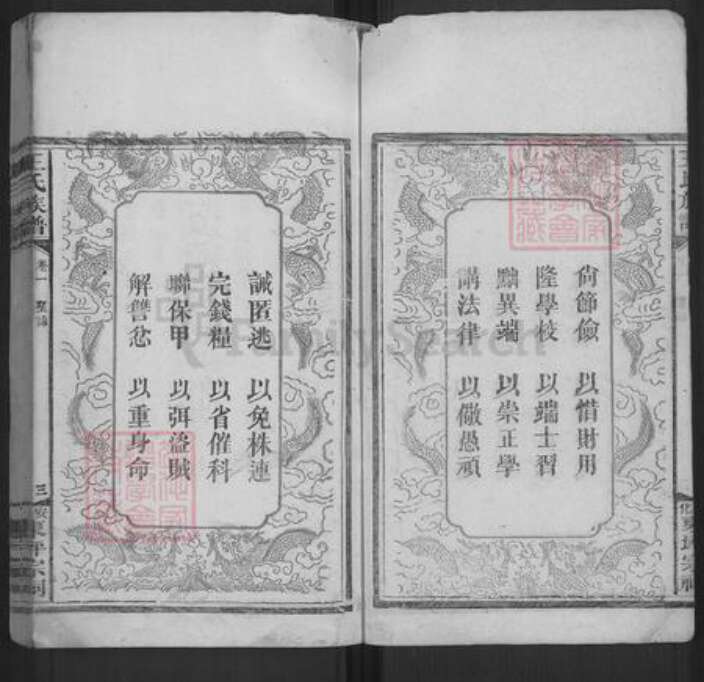 尙節儉 以惜財用
隆學校 以端士習
黜異端 以崇正學
講法律 以儆愚頑
誡匿逃 以免株連
完錢糧 以省催科
聯保甲 以弭盜賊
解讐忿 以重身命
王氏族譜
卷一
三
FamilySearch